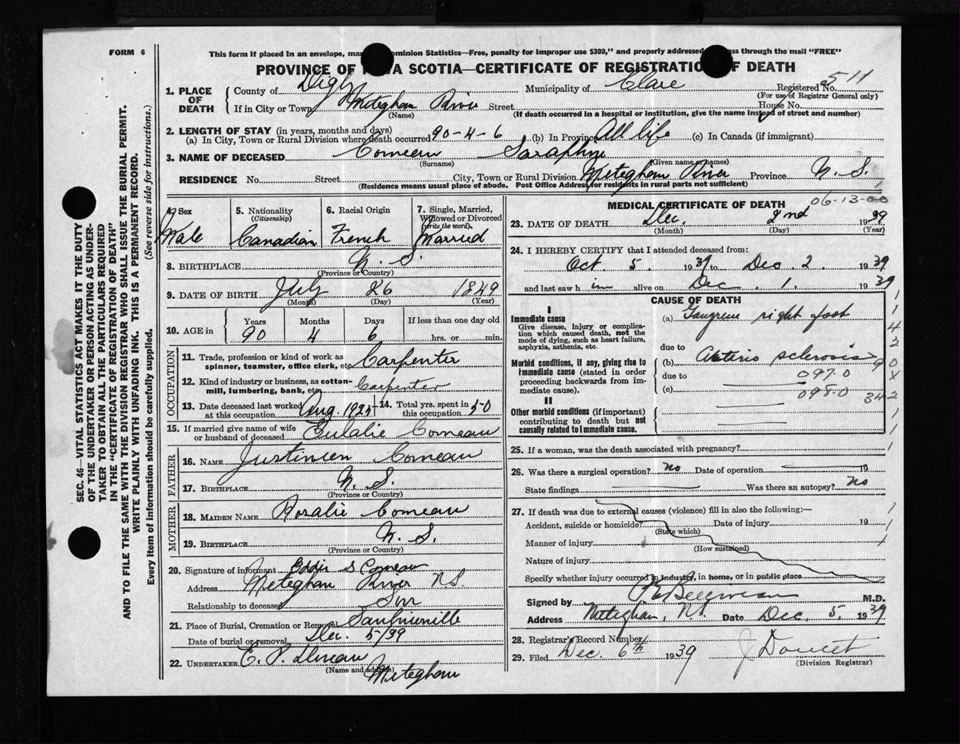 FORM 6
This form if placed in an envelope, Dominion Statistics—Free, penalty for improper use $300," and properly addressed through the mail "FREE"
PROVINCE OF NOVA SCOTIA—CERTIFICATE OF REGISTRATION OF DEATH
1. PLACE OF DEATH County of Digby Municipality of Clare Registered No. 511
(For use of Registrar General only)
If in City or Town Meteghan River Street House No.
(Name) (If death occurred in a hospital or institution, give the name instead of street and number)
2. LENGTH OF STAY (in years, months and days)
(a) In City, Town or Rural Division where death occurred 90-4-6 (b) In Province All life (c) In Canada (if immigrant)
3. NAME OF DECEASED Comeau
(Surname) (Given name or names)
RESIDENCE No. Street City, Town or Rural Division Meteghan River Province N.S.
(Residence means usual place of abode. Post Office Address for residents in rural parts not sufficient)
4. Sex Male
5. Nationality (Citizenship) Canadian
6. Racial Origin French
7. Single, Married, Widowed or Divorced (write the word). Married
8. BIRTHPLACE N.S.
(Province or Country)
9. DATE OF BIRTH July 26 1849
(Month) (Day) (Year)
10. AGE in Years Months Days If less than one day old
90 4 6 hrs. or min.
OCCUPATION
11. Trade, profession or kind of work as spinner, teamster, office clerk, etc. Carpenter
12. Kind of industry or business, as cotton-mill, lumbering, bank, etc. Carpenter
13. Date deceased last worked at this occupation Aug. 14. Total yrs. spent in this occupation 50
15. If married give name of wife or husband of deceased Eulalie Comeau
FATHER
16. NAME Justinien Comeau
17. BIRTHPLACE N.S.
(Province or Country)
MOTHER
18. MAIDEN NAME Rosalie Comeau
19. BIRTHPLACE N.S.
(Province or Country)
20. Signature of informant Eddie S Comeau
Address Meteghan River N.S.
Relationship to deceased Son
21. Place of Burial, Cremation or Removal
Date of burial or removal Dec. 5/39
22. UNDERTAKER
(Name and address) Meteghan
MEDICAL CERTIFICATE OF DEATH
06-13-00
23. DATE OF DEATH Dec. 2nd 1939
(Month) (Day) (Year)
24. I HEREBY CERTIFY that I attended deceased from:
Oct 5. 1939 to Dec. 2. 1939
and last saw him alive on Dec. 1. 1939
CAUSE OF DEATH
I
Immediate cause
Give disease, injury or complication which caused death, not the mode of dying, such as heart failure, asphyxia, asthenia, etc.
(a) Gangrene right foot
due to
Morbid conditions, if any, giving rise to immediate cause (stated in order proceeding backwards from immediate cause).
(b) Arterio sclerosis
due to 097.0
(c) 098.0
II
Other morbid conditions (if important) contributing to death but not causally related to immediate cause.
25. If a woman, was the death associated with pregnancy?
26. Was there a surgical operation? No Date of operation 19
State findings Was there an autopsy? No
27. If death was due to external causes (violence) fill in also the following:—
Accident, suicide or homicide? Date of injury 19
(State which)
Manner of injury
(How sustained)
Nature of injury
Specify whether injury occurred in industry, in home, or in public place
Signed by M.D.
Address Meteghan, N.S. Date Dec. 5 1939
28. Registrar's Record Number
29. Filed Dec. 6th 1939 J Doucet
(Division Registrar)
SEC. 46—VITAL STATISTICS ACT MAKES IT THE DUTY
OF THE UNDERTAKER OR PERSON ACTING AS UNDER-
TAKER TO OBTAIN ALL THE PARTICULARS REQUIRED
IN THE "CERTIFICATE OF REGISTRATION OF DEATH"
AND TO FILE THE SAME WITH THE DIVISION REGISTRAR WHO SHALL ISSUE THE BURIAL PERMIT.
WRITE PLAINLY WITH UNFADING INK. THIS IS A PERMANENT RECORD.
Every item of information should be carefully supplied. (See reverse side for instructions.)